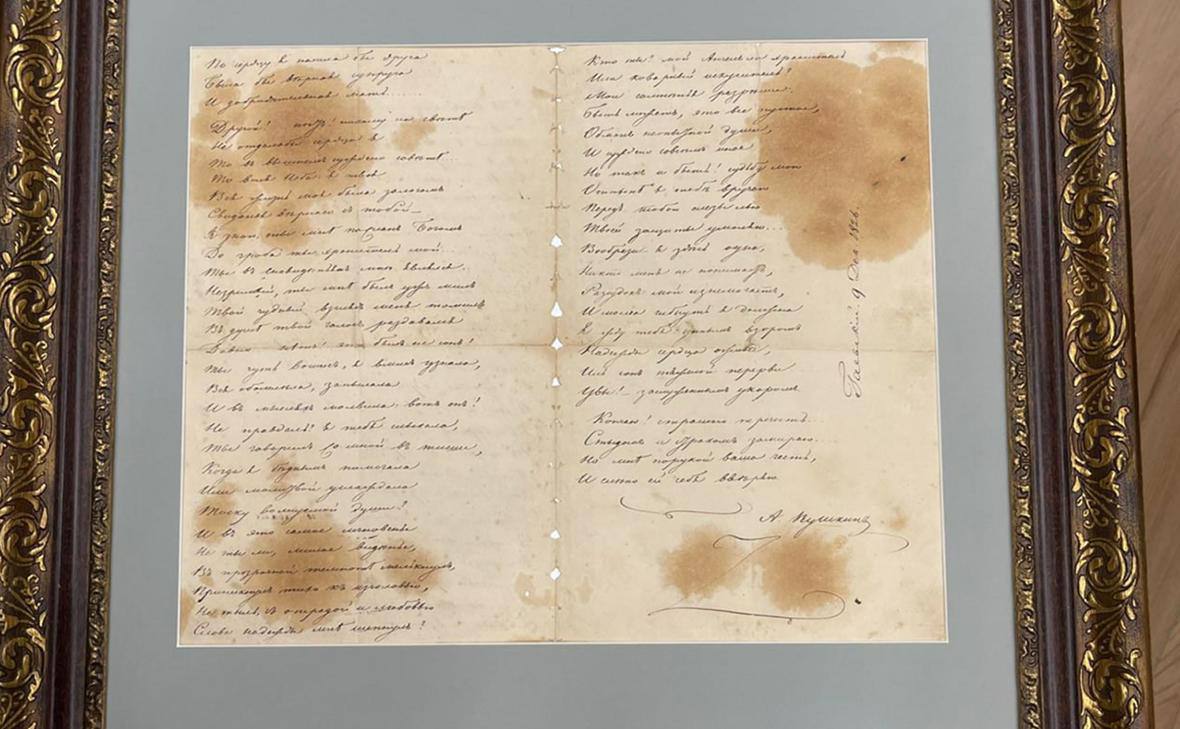 По сердцу я нашла бы друга
Была бы верная супруга
И добродетельная мать......
Другой! нетъ! никому на свете
Не отдала бы сердца я
То въ вышнемъ суждено совете..
То воля Неба: я твоя
Вся жизнь моя была залогомъ
Свиданья вернаго съ тобой_
Я знаю, ты мне посланъ Богомъ
До гроба ты хранитель мой...
Ты въ сновиденьяхъ мне являлся.
Незримый, ты мне былъ ужъ милъ
Твой чудный взглядъ меня томилъ
Въ душе твой голосъ раздавался
Давно.. нетъ! это былъ не сонъ!
Ты чуть вошелъ, я вмигъ узнала,
Вся обомлела, запылала
И въ мысляхъ молвила: вотъ онъ!
Не правда ль? Я тебя слыхала,
Ты говорилъ со мной въ тиши,
Когда я беднымъ помогала
Или молитвой услаждала
Тоску волнуемой души?
И въ это самое мгновенье
Не ты ли, милое виденье,
Въ прозрачной темноте мелькнулъ,
Приникнулъ тихо къ изголовью,
Не ты ль, съ отрадой и любовью
Слова надежды мне шепнулъ?
Кто ты? мой Ангелъ ли хранитель
Или коварный искуситель?
Мои сомненья разреши.
Быть можетъ, это все пустое,
Обманъ неопытной души,
И суждено совсемъ иное
Но такъ и быть! судьбу мою
Отныне я тебе вручаю
Передъ тобою слезы лью
Твоей защиты умоляю...
Вообрази: я здесь одна,
Никто меня не понимаетъ,
Разсудокъ мой изнемогаетъ,
И молча гибнуть я должна
Я жду тебя: единымъ взоромъ
Надежды сердца оживи,
Иль сонъ тяжелый перерви
Увы! _ заслуженнымъ укоромъ
Кончаю! страшно перечесть..
Стыдомъ и страхомъ замираю...
Но мне порукой ваша честь,
И смело ей себя вверяю
А. Пушкинъ
Гаевский 9 Дек 1826.